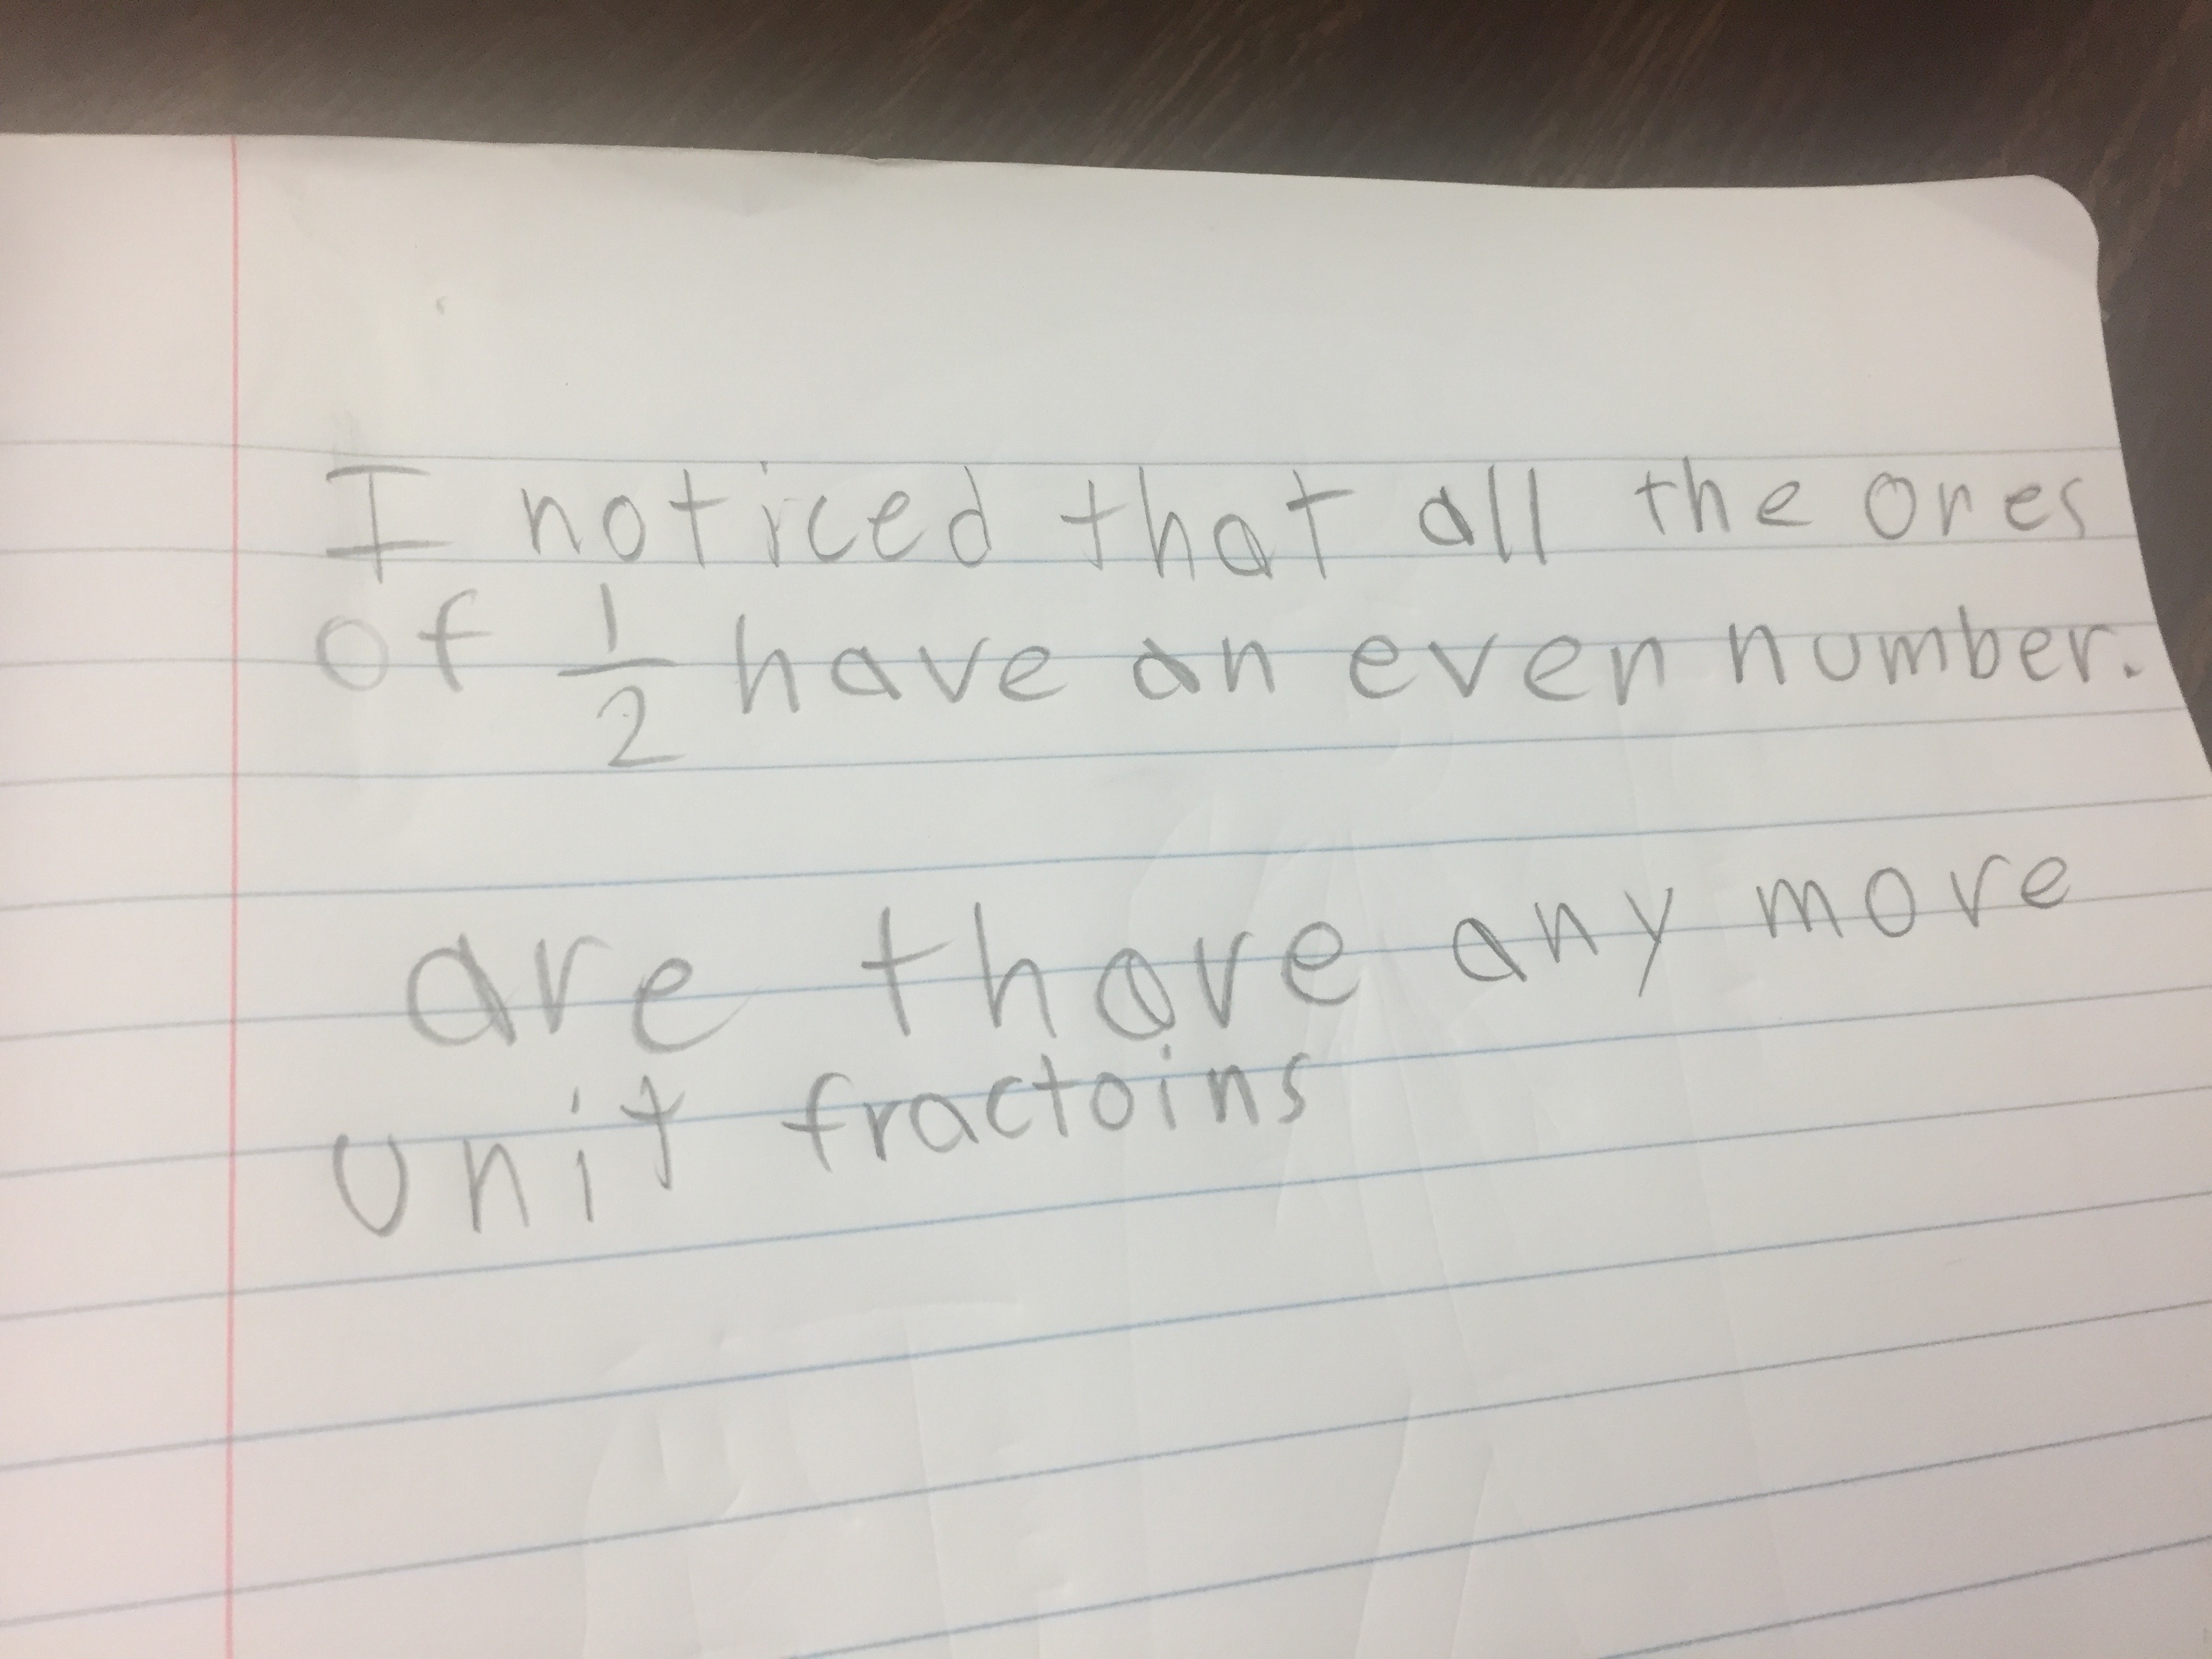 I noticed that all the ones
of 1/2 have an even number.
are thare any more
unit fractoins